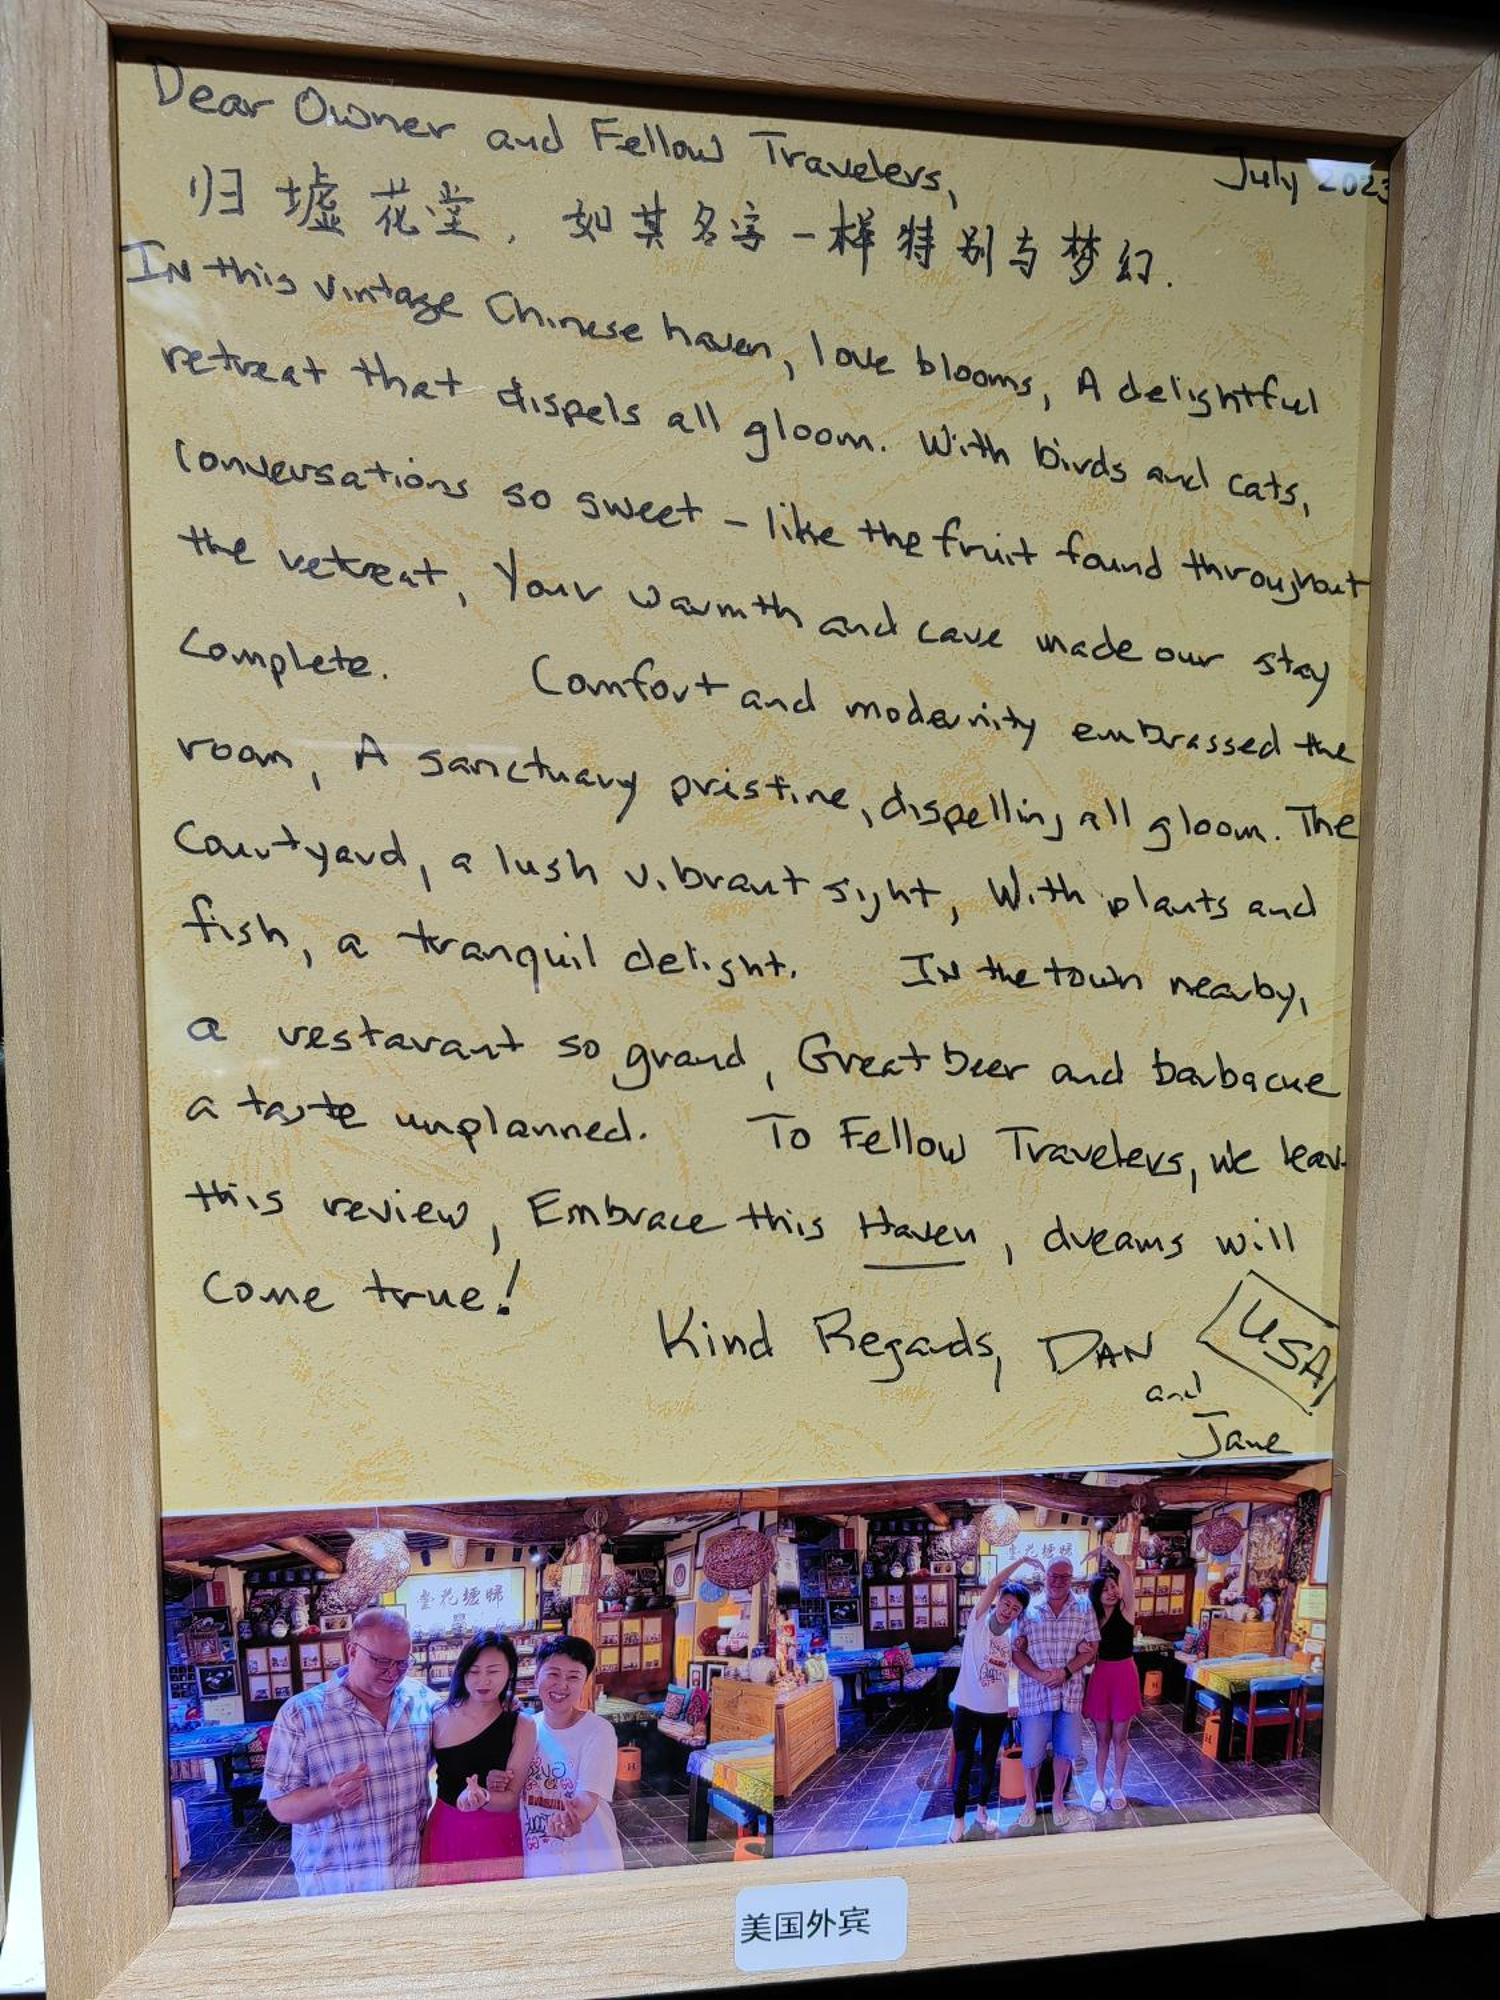 Dear Owner and Fellow Travelers,
July 2023
归墟花堂，如其名字一样特别与梦幻.
IN this vintage Chinese haven, love blooms, A delightful
retreat that dispels all gloom. With birds and cats,
Conversations so sweet - like the fruit found throughout
the retreat, Your warmth and care made our stay
Complete. Comfort and modernity embrassed the
room, A sanctuary pristine, dispelling all gloom. The
Courtyard, a lush vibrant sight, With plants and
fish, a tranquil delight. IN the town nearby,
a restarant so grand, Great beer and barbacue
a taste unplanned. To Fellow Travelers, we leav
this review, Embrace this Haven, dreams will
Come true!
Kind Regards, DAN USA
and
Jane
堂花墟歸
堂花墟歸
美国外宾